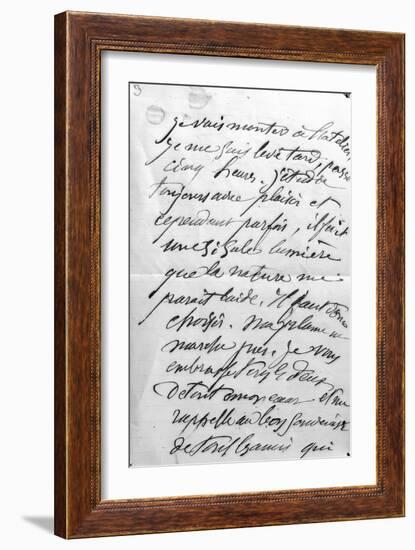 je vais monter à l'atelier
je me suis levé tard, passé
cinq heures. j'étudie
toujours avec plaisir et
cependant parfois, il fait
une si sale lumière
que la nature me
parait laide. Il faut donc
choisir. ma plume ne
marche pas. je vous
embrasse tous les deux
de tout mon coeur et me
rappelle au bon souvenir
de tous les amis qui